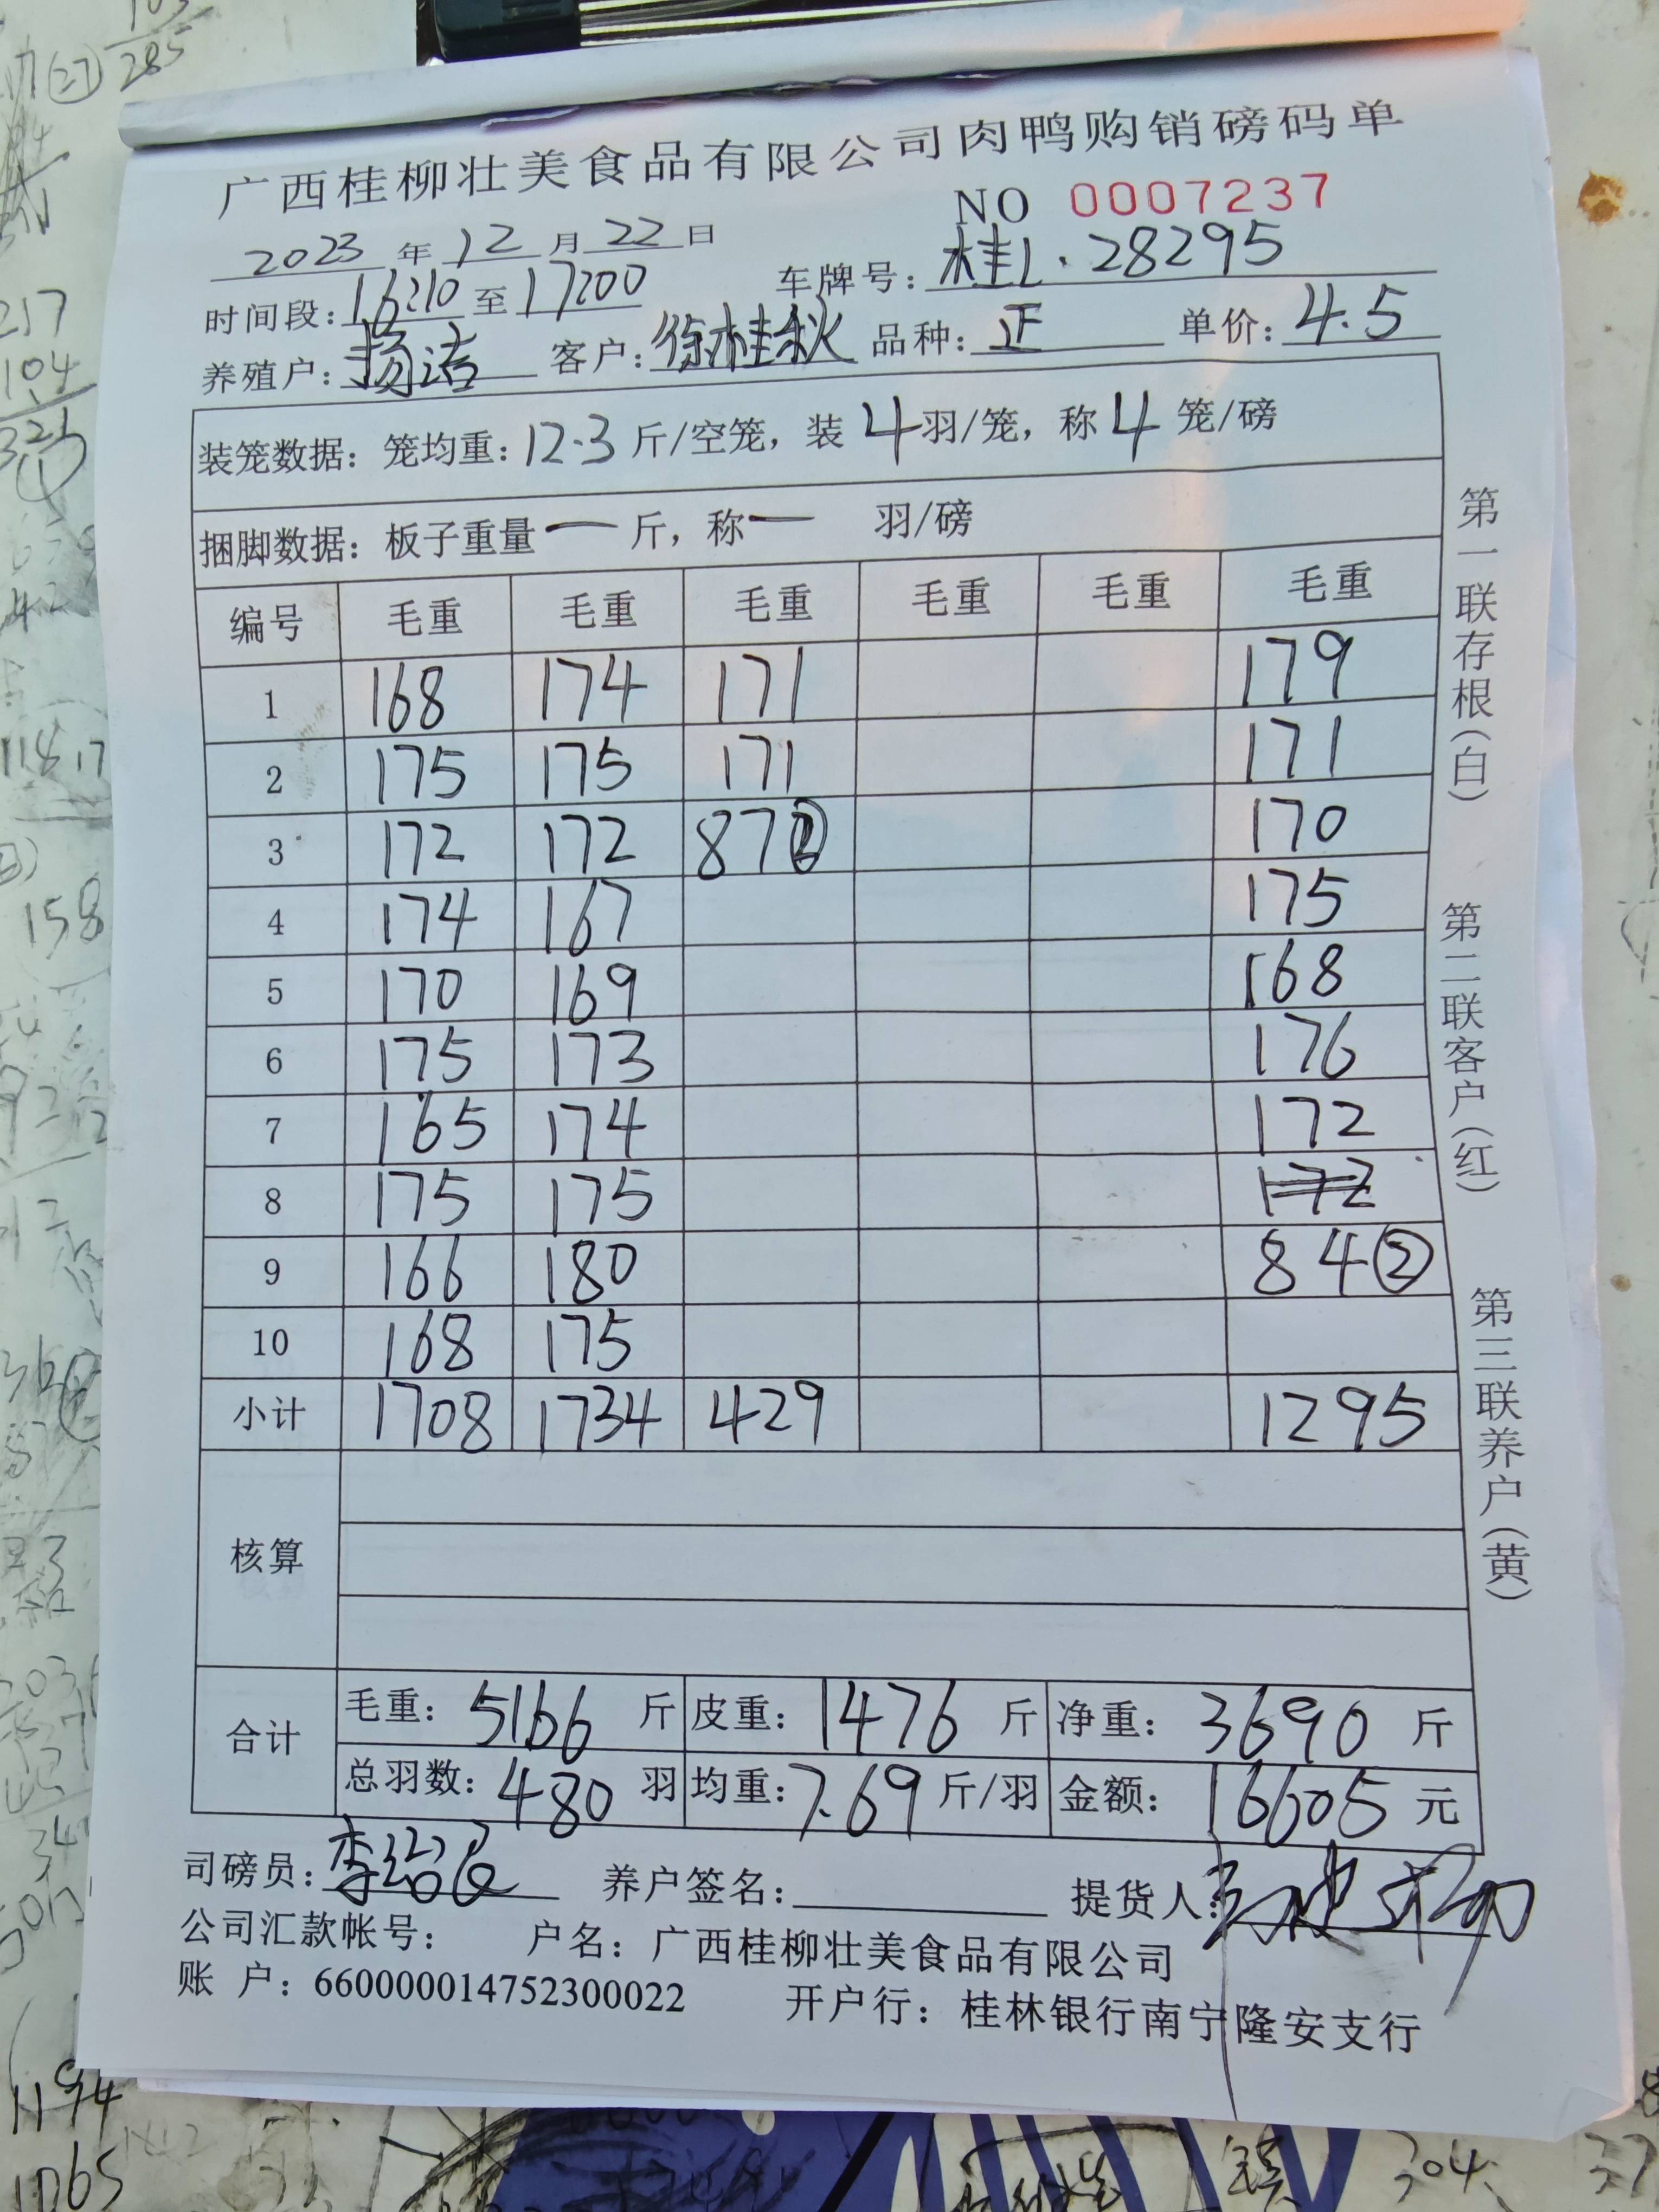 广西桂柳壮美食品有限公司肉鸭购销磅码单
NO 0007237
2023 年 12 月 22 日
车牌号：桂L·28295
时间段：16:10 至 17:00
养殖户：杨洁 客户：徐桂秋 品种：正 单价：4.5
装笼数据：笼均重：12.3 斤/空笼，装 4 羽/笼，称 4 笼/磅
捆脚数据：板子重量 — 斤，称 — 羽/磅
编号 毛重 毛重 毛重 毛重 毛重 毛重
1 168 174 171 179
2 175 175 171 171
3 172 172 87② 170
4 174 167 175
5 170 169 168
6 175 173 176
7 165 174 172
8 175 175 172
9 166 180 84②
10 168 175
小计 1708 1734 429 1295
核算
合计
毛重：5166 斤 皮重：1476 斤 净重：3690 斤
总羽数：480 羽 均重：7.69 斤/羽 金额：16605 元
司磅员： 养户签名： 提货人：
公司汇款帐号： 户名：广西桂柳壮美食品有限公司
账 户：660000014752300022 开户行：桂林银行南宁隆安支行
第一联存根（白）
第二联客户（红）
第三联养户（黄）
285
217
104
158
1194
1065
304